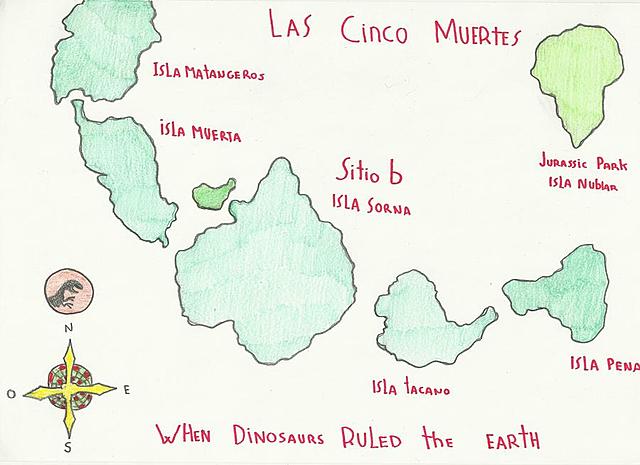 LAS CINCO MUERTES
ISLA MATANCEROS
ISLA MUERTA
Sitio b
ISLA SORNA
JURASSIC PARK
ISLA NUBLAR
N
O
E
S
ISLA TACANO
ISLA PENA
WHEN DINOSAURS RULED the EARTH